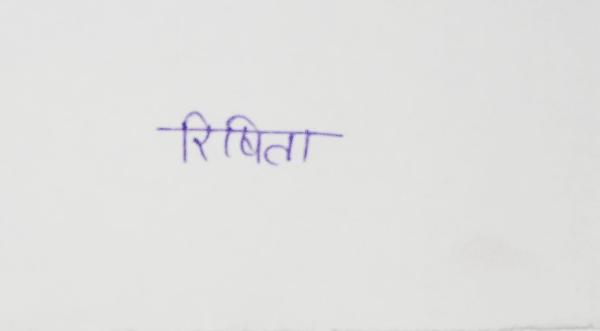 रिषिता